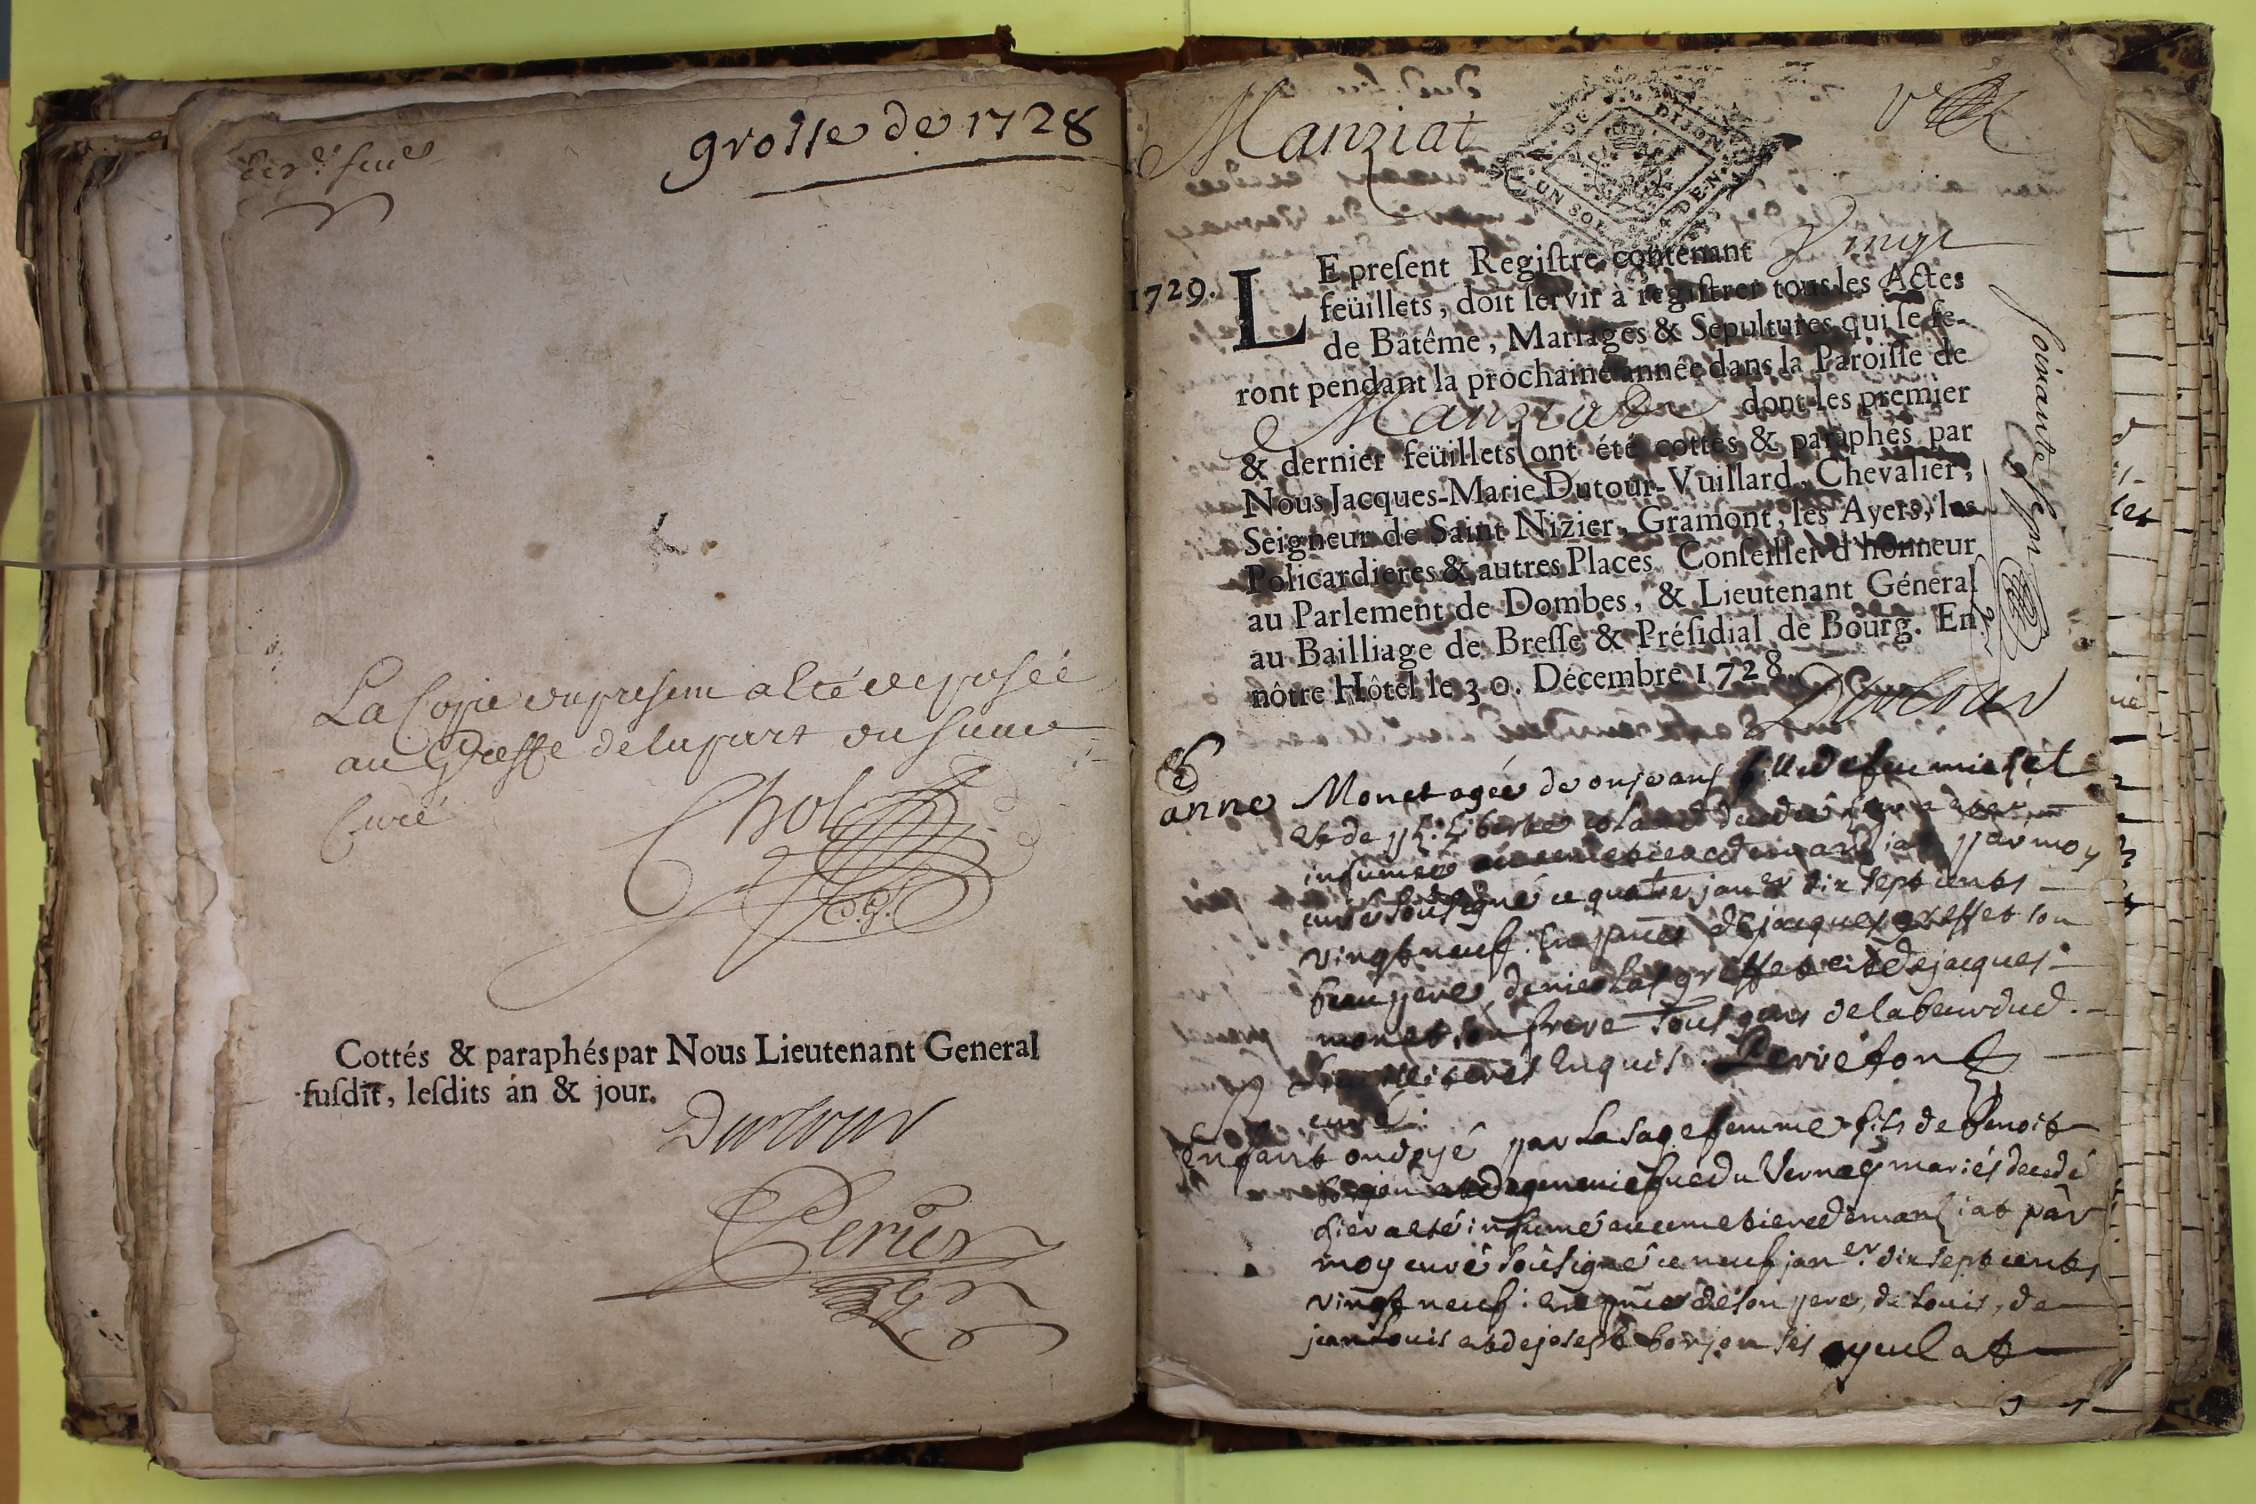 grosse de 1728
La Copie du present a été déposée
au Greffe de la part du sieur
Curé
Chol
Cottés & paraphés par Nous Lieutenant General
susdit, lesdits an & jour.
Dutour
Perier
Manziat
DE DIJON
UN SOL 4 DEN.
1729.
LE present Registre contenant Vingt
feüillets, doit servir à registrer tous les Actes
de Bâtême, Mariages & Sepultures qui se fe-
ront pendant la prochaine année dans la Paroisse de
Manziat dont les premier
& dernier feüillets ont été cottés & paraphés par
Nous Jacques-Marie Dutour-Vuillard, Chevalier,
Seigneur de Saint Nizier, Gramont, les Ayers, les
Policardieres & autres Places, Conseiller d'honneur
au Parlement de Dombes, & Lieutenant Général
au Bailliage de Bresse & Présidial de Bourg. En
nôtre Hôtel le 30. Décembre 1728.
Dutour
soixante sept
anne Monet agée de onze ans fille de feu michel
et de
inhumée au cemetiere de manziat par moy
curé soûsigné ce quatre jan.er dix sept cents
vingt neuf. En pñce de jacques greffet son
beaupere de nicolas greffet et de jacques
monet son frere tous gens de labeur dud.
enquis. Perreton
curé.
Enfant ondoyé par la sage femme fils de benoit
borjon et de genevieve du Vernay mariés decedé
hier a été inhumé au cemetiere de manziat par
moy curé soûsigné ce neuf jan.er dix sept cents
vingt neuf: en pñce de son pere, de Louis, de
jean Louis et de joseph borjon ses ayeul et